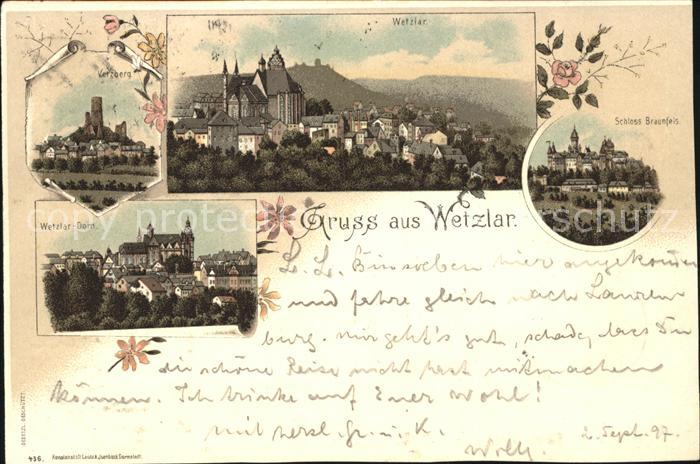 Wetzlar.
Vetzberg
Schloss Braunfels.
Wetzlar-Dom.
Gruss aus Wetzlar.
L. L. Bin soeben hier angekommen
und fahre gleich nach Lauren
burg. mir geht's gut, schade, dass Du
die schöne Reise nicht hast mitmachen
können. Ich trinke auf Euer Wohl!
mit herzl. Gr. u. K.
2. Sept. 97.
GESETZL. GESCHÜTZT.
436. Kunstanstalt Lautz & Darmstadt.
Bildschutz